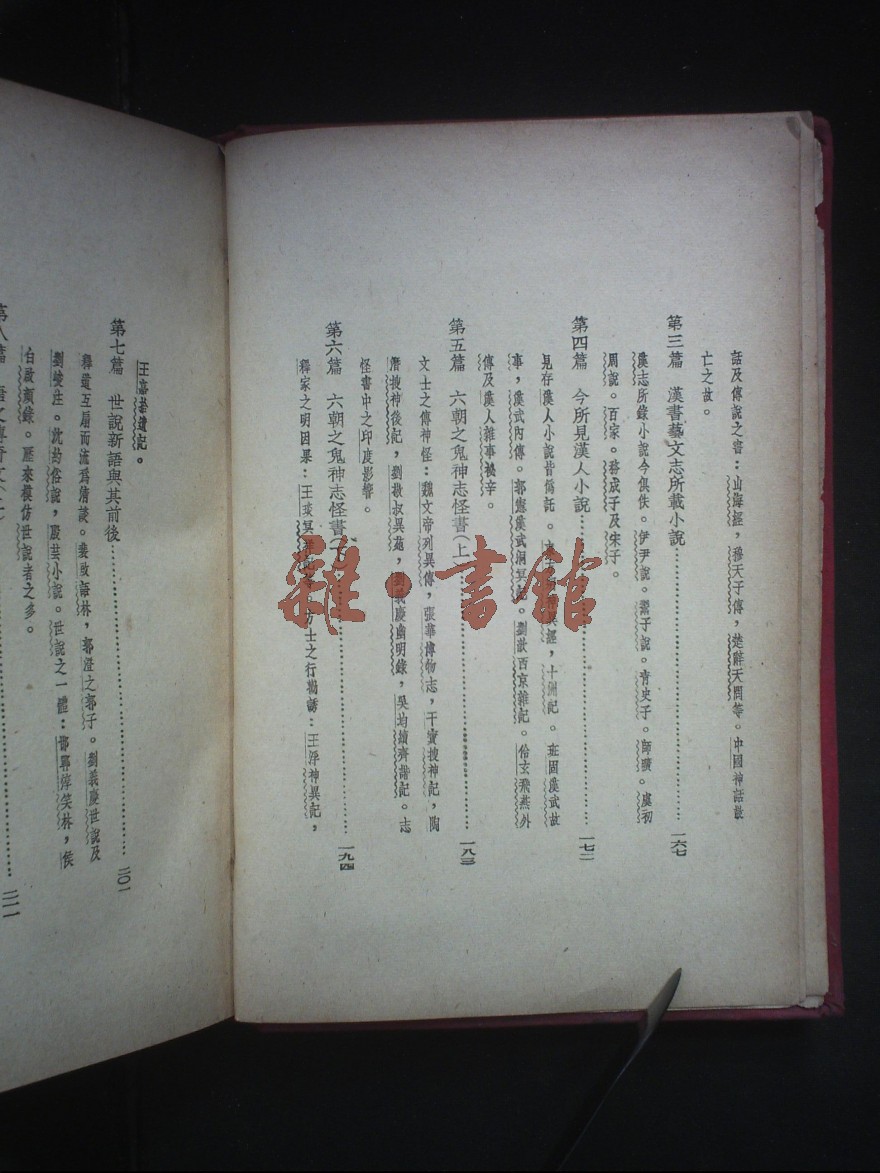 話及傳說之書：山海經，穆天子傳，楚辭天問等。中國神話散
亡之故。
第三篇　漢書藝文志所載小說……一六七
漢志所錄小說今俱佚。伊尹說。鬻子說。青史子。師曠。虞初
周說。百家。務成子及宋子。
第四篇　今所見漢人小說……一七二
見存漢人小說皆僞託。東方朔神異經，十洲記。班固漢武故
事，漢武內傳。郭憲漢武洞冥記。劉歆西京雜記。伶玄飛燕外
傳及漢人雜事祕辛。
第五篇　六朝之鬼神志怪書（上）……一八三
文士之傳神怪：魏文帝列異傳，張華博物志，干寶搜神記，陶
潛搜神後記，劉敬叔異苑，劉義慶幽明錄，吳均續齊諧記。志
怪書中之印度影響。
第六篇　六朝之鬼神志怪書（下）……一九四
釋家之明因果：王琰冥祥記等。方士之行勸誘：王浮神異記，
王嘉拾遺記。
第七篇　世說新語與其前後……二〇一
釋道互扇而流爲清談。裴啟語林，郭澄之郭子。劉義慶世說及
劉峻注。沈約俗說，殷芸小說。世說之一體：邯鄲淳笑林，侯
白啟顏錄。歷來模仿世說者之多。
第八篇　唐之傳奇文（上）……二一一
雜·書館